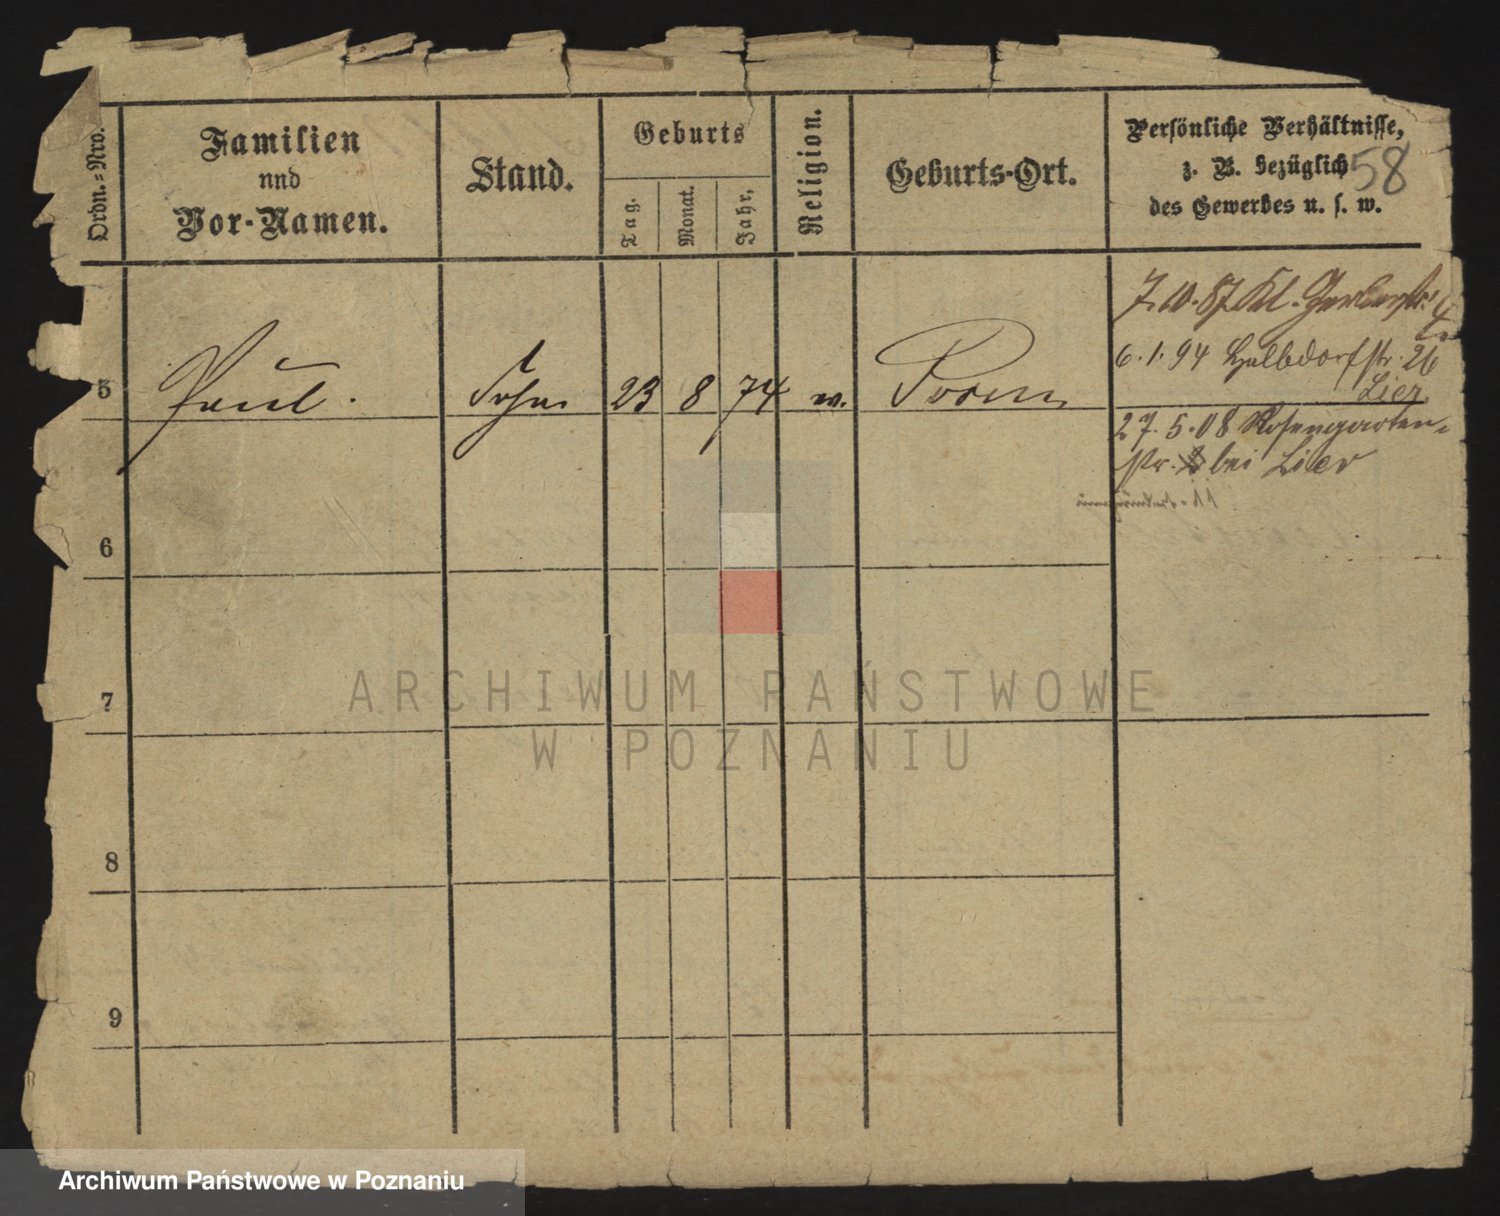 Ordn.=Nro.
Familien
und
Vor-Namen.
Stand.
Geburts
Tag.
Monat.
Jahr.
Religion.
Geburts-Ort.
Persönliche Verhältnisse,
z. B. bezüglich
des Gewerbes u. s. w.
58
7.10.87 Kl. Gerberstr. 4
6.1.94 Halbdorfstr. 26
Lier
5
Paul.
Sohn
23
8
74
Posen
27.5.08 Rosengarten-
str. bei Lier
6
7
8
9
ARCHIWUM PAŃSTWOWE
W POZNANIU
Archiwum Państwowe w Poznaniu